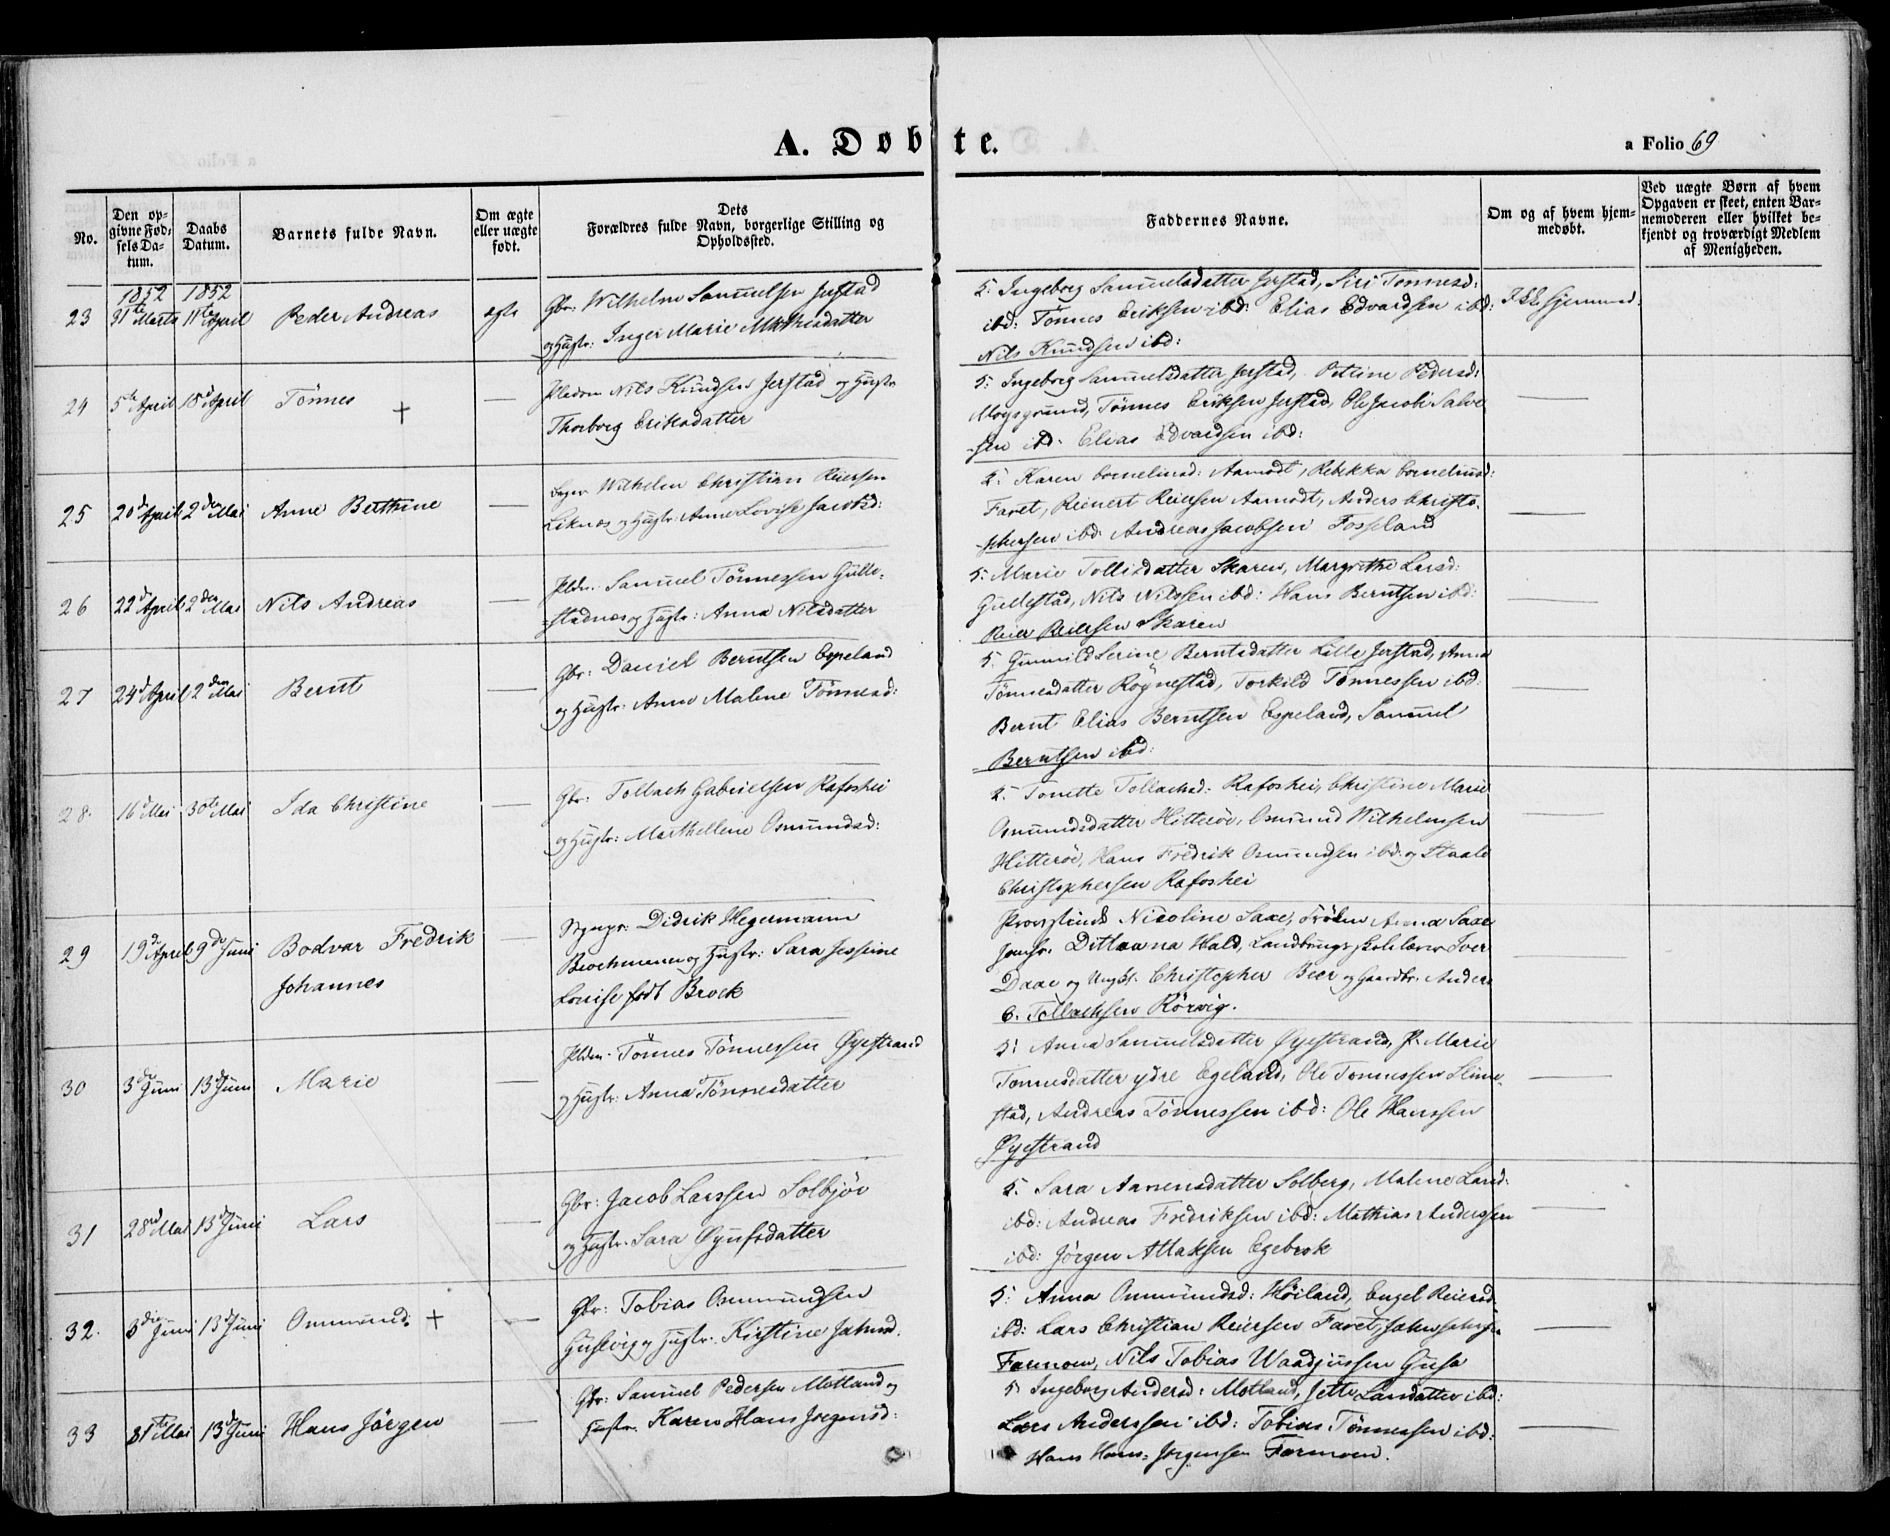 A. Døbte.
a Folio 69
No.
Den op-
givne Fød-
sels Da-
tum.
Daabs
Datum.
Barnets fulde Navn.
Om ægte
eller uægte
født.
Dets
Forældres fulde Navn, borgerlige Stilling og
Opholdssted.
Faddernes Navne.
Om og af hvem hjem-
medøbt.
Ved uægte Børn af hvem
Opgaven er skeet, enten Bar-
nemoderen eller hvilket be-
kjendt og troværdigt Medlem
af Menigheden.
1852 1852
23 31te Marts 11te April Peder Andreas ægte
Gbr: Wilhelm Samuelsen Jerstad
og Hustr: Inger Marie Mathiasdatter
5: Ingeborg Samuelsdatter Jerstad, Siri Tønnesd:
ibd: Tønnes Eriksen ibd: Elias Edvardsen ibd:
Nils Knudsen ibd:
Ikke hjemmed:
24 5te April 18d April Tönnes + —
Pladsm Nils Knudsen Jerstad og Hustr
Thorborg Eriksdatter
5: Ingeborg Samuelsdatter Jerstad, Petrine Pedersd:
Mogsgrund, Tønnes Eriksen Jerstad, Ole Jacob Salve
-sen ibd. Elias Edvardsen ibd:
—
25 20d April 2den Mai Anne Berthine —
Wilhelm Christian Reiersen
Liknes og Hustr: Anne Lovise Jacobsd:
5: Karen Corneliusd: Aamodt, Rebekka Corneliusd:
Faret, Reinert Reiersen Aamodt, Anders Christo-
-phersen ibd: Andreas Jacobsen Fosseland
—
26 22d April 2den Mai Nils Andreas —
Pldm. Samuel Tönnessen Gulle-
-stadnes og Hustr: Anna Nilsdatter
5: Marie Tollisdatter Skaren, Margrethe Larsd:
Gullestad, Nils Nilssen ibd: Hans Berntsen ibd:
Reier Reiersen Skaren
—
27 24d April 2den Mai Bernt —
Gbr: Daniel Berntsen Espeland
og Hustr: Anne Malene Tönnesd:
5. Gunnild Serine Berntsdatter Lille Jerstad, Anna
Tønnesdatter Røgnestad, Torkild Tønnessen ibd:
Bernt Elias Berntsen Espeland, Samuel
Berntsen ibd:
—
28. 16d Mai 30te Mai Ida Christine —
Gbr: Tollach Gabrielsen Rafoshei
og Hustr: Marthellene Osmundsd:
5. Tonette Tollachsd: Rafoshei, Christine Marie
Osmundsdatter Hitterøe, Osmund Wilhelmsen
Hitterøe, Hans Fredrik Osmundsen ibd: og Staale
Christophersen Rafoshei
—
29 19de April 9de Juni Bodvar Fredrik
Johannes —
Didrik Hegermann
Brochmann og Hustr: Sara Jessine
Louise født Brock
Provstinde Nicoline Saxe, Frøken Anna Saxe
Jomfr. Ditlaana Hald, Landbrugsskolelærer Iver
Daae og Ungk. Christopher Beer og Gaardbr. Anders
C. Tollachsen Rörvig.
—
30 3de Juni 13d Juni Marie —
Pldm. Tönnes Tönnessen Øyestrand
og Hustr: Anna Tönnesdatter
5: Anna Samuelsdatter Øyestrand, P. Marie
Tonnesdatter ydre Egeland, Ole Tonnessen Slime-
stad, Andreas Tönnessen ibd: Ole Hanssen
Øyestrand
—
31 28de Mai 13d Juni Lars —
Gbr: Jacob Larssen Solbjør
og Hustr. Sara Øynfsdatter
5. Sara Aanensdatter Solberg, Malene Larsd:
ibd: Andreas Fredriksen ibd: Mathias Anderssen
ibd: Jørgen Atlaksen Egebrok
—
32. 3die Juni 13d Juni Ommund. + —
Gbr: Tobias Ommundsen
og Hustr. Kirstine Johnsd.
5: Anna Ommundsd: Høiland, Engel Reiersd.
ibd: Lars Christian Reiersen Faret, John
Farmoen, Nils Tobias Waadjussen Gusa
—
33 31te Mai 13d Juni Hans Jörgen —
Gbr: Samuel Pedersen Motland og
Hustr. Karen Hans Jørgensd:
5 Ingeborg Andersd: Motland, Jette Larsdatter ibd:
Lars Anderssen ibd: Tobias Tönnessen ibd:
Hans Hans-Jørgensen Farmoen.
—